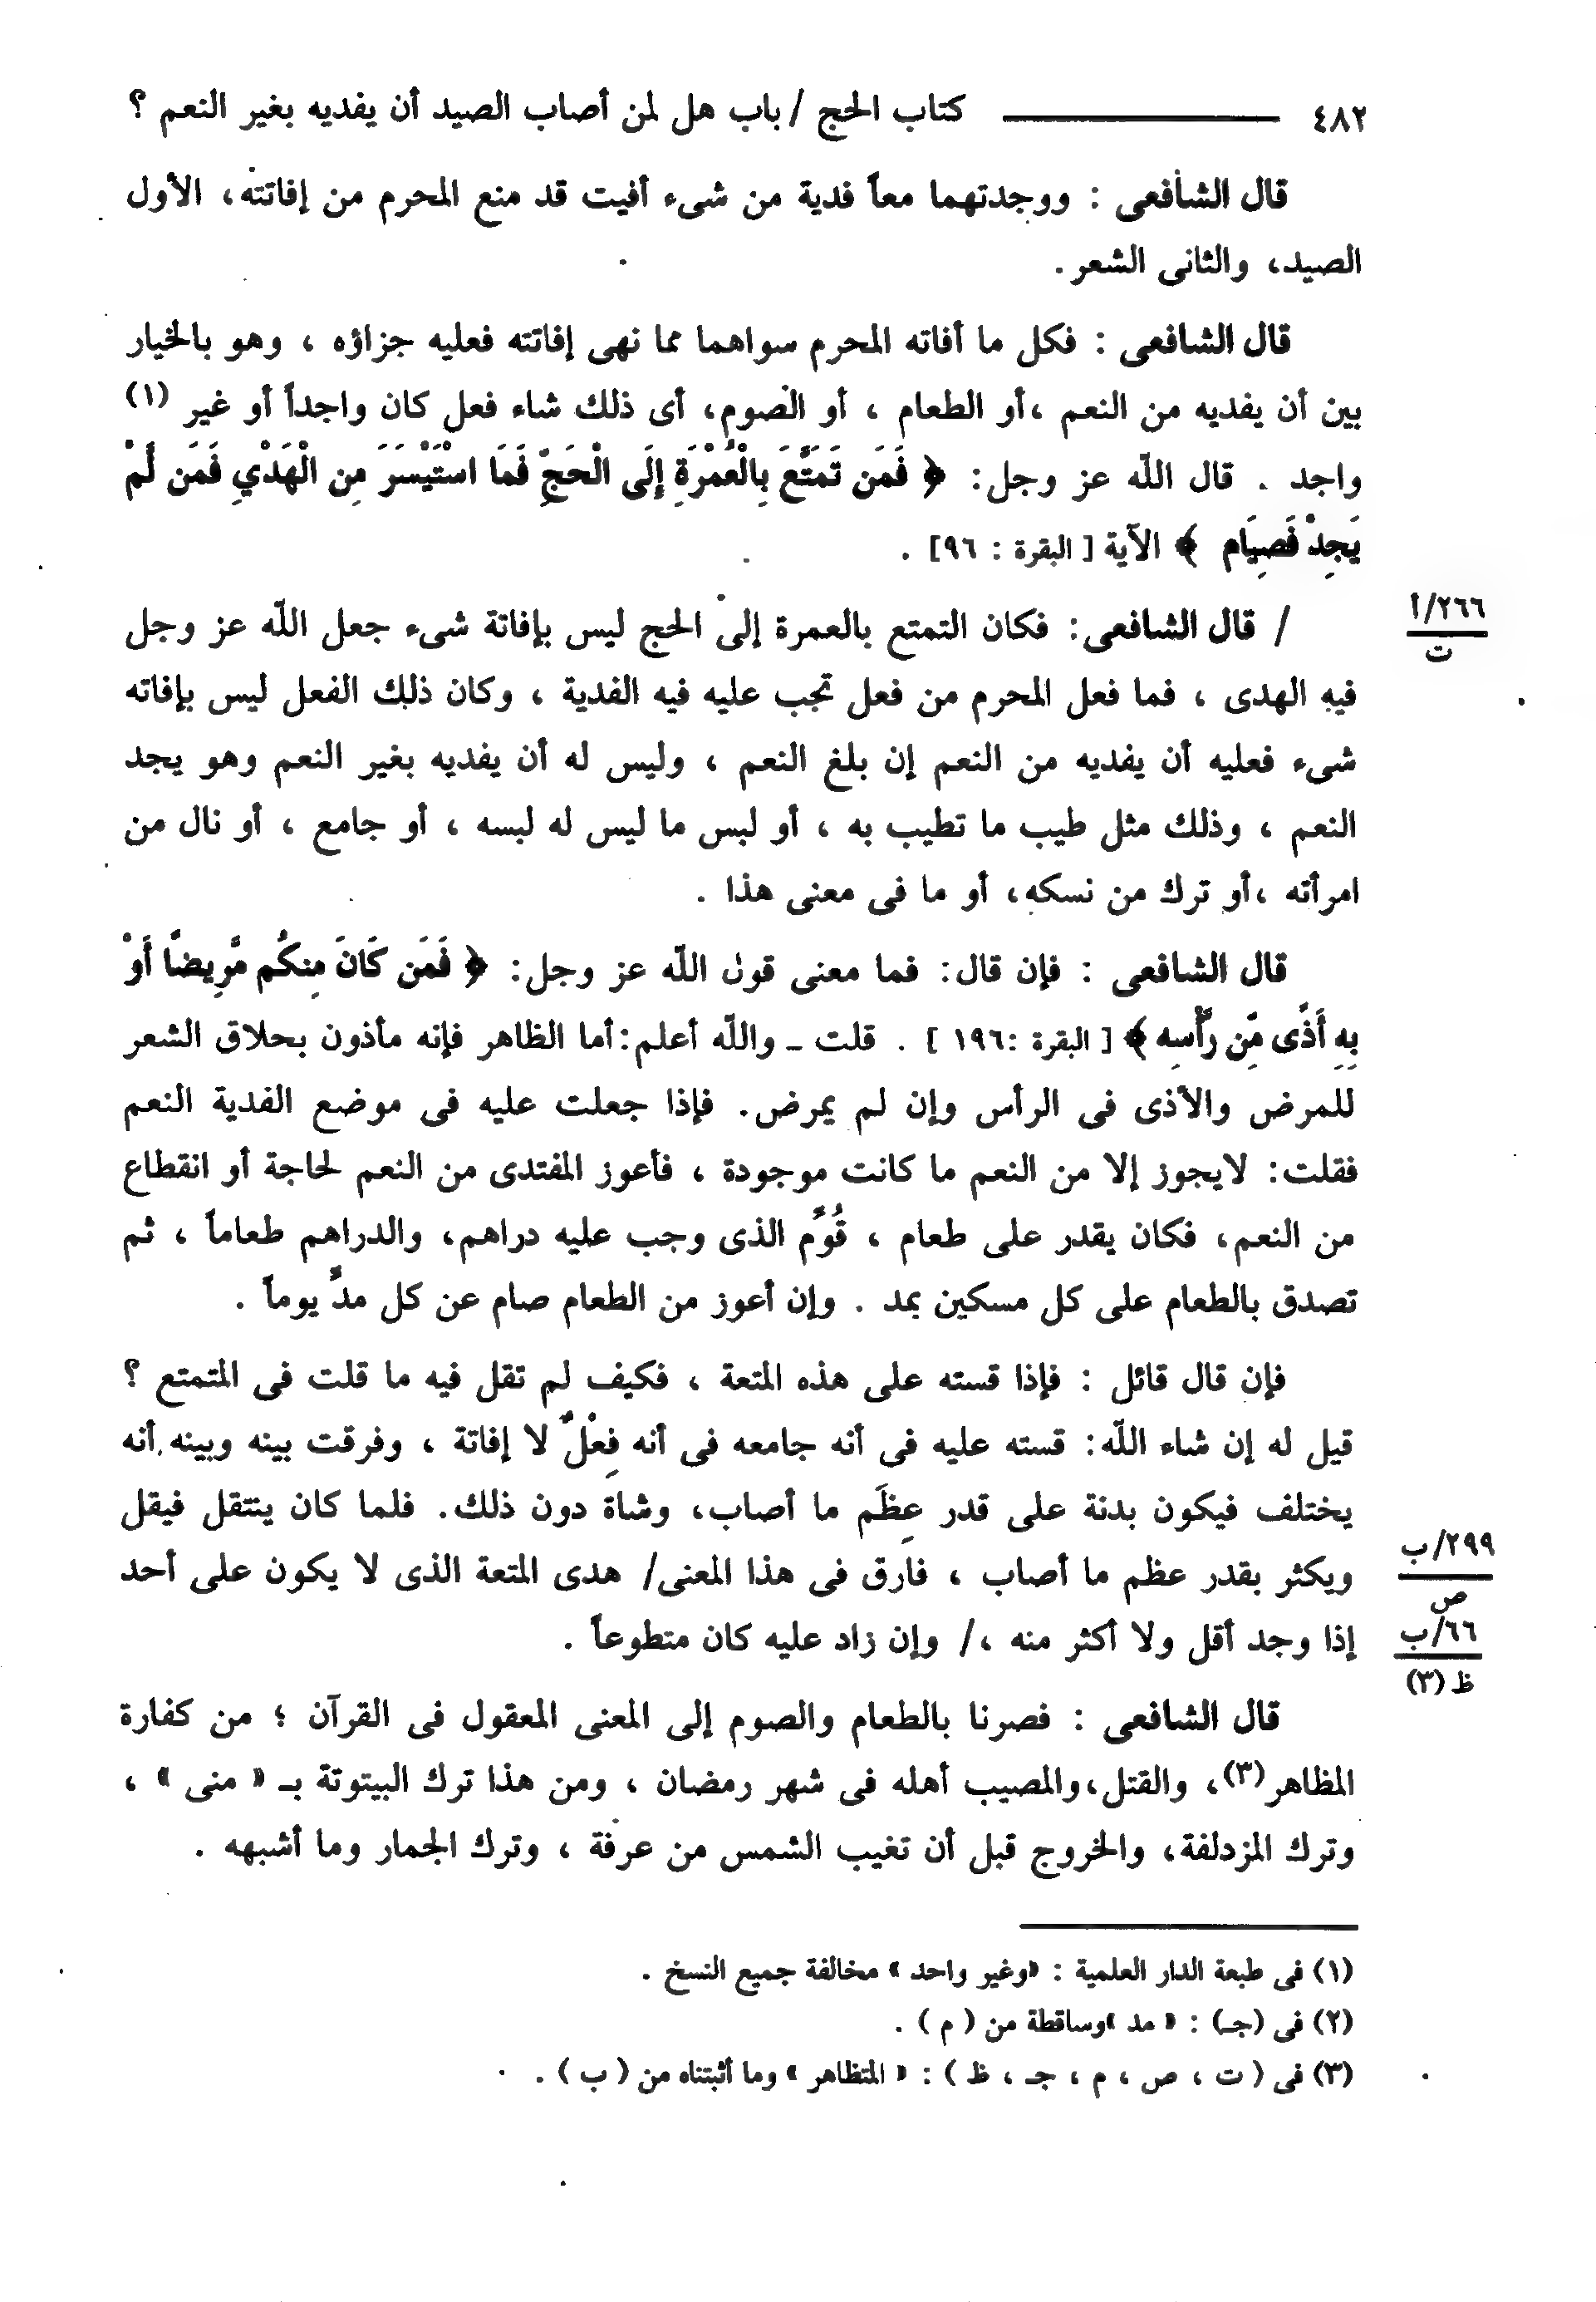 ٤٨٢ ـــــــــ كتاب الحج / باب هل لمن أصاب الصيد أن يفديه بغير النعم ؟
قال الشافعى : ووجدتهما معاً فدية من شىء أفيت قد منع المحرم من إفاتته، الأول
الصيد، والثانى الشعر.
قال الشافعى : فكل ما أفاته المحرم سواهما مما نهى إفاتته فعليه جزاؤه ، وهو بالخيار
بين أن يفديه من النعم ،أو الطعام ، أو الصوم، أى ذلك شاء فعل كان واجداً أو غير (١)
واجد . قال اللّه عز وجل: ﴿ فَمَن تَمَتَّعَ بِالْعُمْرَةِ إِلَى الْحَجِّ فَمَا اسْتَيْسَرَ مِن الْهَدْيِ فَمَن لَّمْ
يَجِدْ فَصِيَام ﴾ الآية [ البقرة : ٩٦] .
٢٦٦/أ
ت
/ قال الشافعى: فكان التمتع بالعمرة إلى الحج ليس بإفاتة شىء جعل اللّه عز وجل
فيه الهدى ، فما فعل المحرم من فعل تجب عليه فيه الفدية ، وكان ذلك الفعل ليس بإفاته
شىء فعليه أن يفديه من النعم إن بلغ النعم ، وليس له أن يفديه بغير النعم وهو يجد
النعم ، وذلك مثل طيب ما تطيب به ، أو لبس ما ليس له لبسه ، أو جامع ، أو نال من
امرأته ،أو ترك من نسكه، أو ما فى معنى هذا .
قال الشافعى : فإن قال: فما معنى قول اللّه عز وجل: ﴿ فَمَن كَانَ مِنكُم مَّرِيضًا أَوْ
بِهِ أَذًى مِّن رَّأْسِهِ ﴾ [ البقرة :١٩٦ ] . قلت ـ واللّه أعلم:أما الظاهر فإنه مأذون بحلاق الشعر
للمرض والأذى فى الرأس وإن لم يمرض. فإذا جعلت عليه فى موضع الفدية النعم
فقلت: لايجوز إلا من النعم ما كانت موجودة ، فأعوز المفتدى من النعم لحاجة أو انقطاع
من النعم، فكان يقدر على طعام ، قُوِّم الذى وجب عليه دراهم، والدراهم طعاماً ، ثم
تصدق بالطعام على كل مسكين بمد . وإن أعوز من الطعام صام عن كل مدٍّ يوماً .
فإن قال قائل : فإذا قسته على هذه المتعة ، فكيف لم تقل فيه ما قلت فى المتمتع ؟
قيل له إن شاء اللّه: قسته عليه فى أنه جامعه فى أنه فِعْلٌ لا إفاتة ، وفرقت بينه وبينه أنه
يختلف فيكون بدنة على قدر عِظَم ما أصاب، وشاة دون ذلك. فلما كان ينتقل فيقل
٢٩٩/ب
ص
ويكثر بقدر عظم ما أصاب ، فارق فى هذا المعنى/ هدى المتعة الذى لا يكون على أحد
٦٦/ب
ظ (٣)
إذا وجد أقل ولا أكثر منه ،/ وإن زاد عليه كان متطوعاً .
قال الشافعى : فصرنا بالطعام والصوم إلى المعنى المعقول فى القرآن ؛ من كفارة
المظاهر(٣)، والقتل،والمصيب أهله فى شهر رمضان ، ومن هذا ترك البيتوتة بـ « منى » ،
وترك المزدلفة، والخروج قبل أن تغيب الشمس من عرفة ، وترك الجمار وما أشبهه .
(١) فى طبعة الدار العلمية : «وغير واحد » مخالفة جميع النسخ .
(٢) فى (جـ) : « مد »وساقطة من ( م ) .
(٣) فى ( ت ، ص ، م ، جـ ، ظ ) : « المتظاهر » وما أثبتناه من ( ب ) .